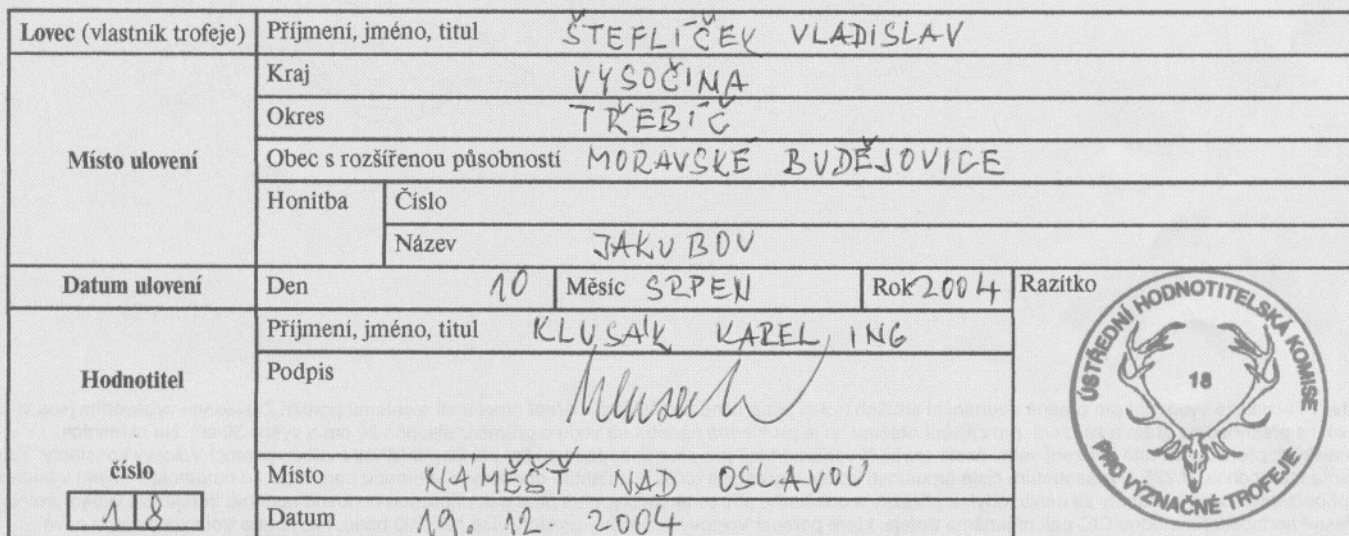 Lovec (vlastník trofeje) Příjmení, jméno, titul ŠTEFLÍČEK VLADISLAV
Místo ulovení
Kraj VYSOČINA
Okres TŘEBÍČ
Obec s rozšířenou působností MORAVSKÉ BUDĚJOVICE
Honitba Číslo
Název JAKUBOV
Datum ulovení Den 10 Měsíc SRPEN Rok 2004 Razítko
Hodnotitel
Příjmení, jméno, titul KLUSÁK KAREL, ING
Podpis
číslo
18
Místo NÁMĚŠŤ NAD OSLAVOU
Datum 19. 12 2004
ÚSTŘEDNÍ HODNOTITELSKÁ KOMISE
18
PRO VÝZNAČNÉ TROFEJE